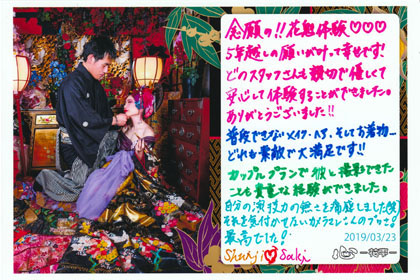 念願の!!花魁体験♡♡♡
5年越しの願いが叶って幸せです!
どのスタッフさんも親切で優しくて
安心して体験することができました。
ありがとうございました!!
普段できないメイク・ヘア、そしてお着物…
どれも素敵で大満足です!!
カップルプランで彼と撮影できた
ことも貴重な経験ができました。
自分の演技力の無さを痛感しました(笑)
それを気付かせないカメラマンさんのプロさ!
最高でした!
Shunji♡Saki
2019/03/23
心 一指華